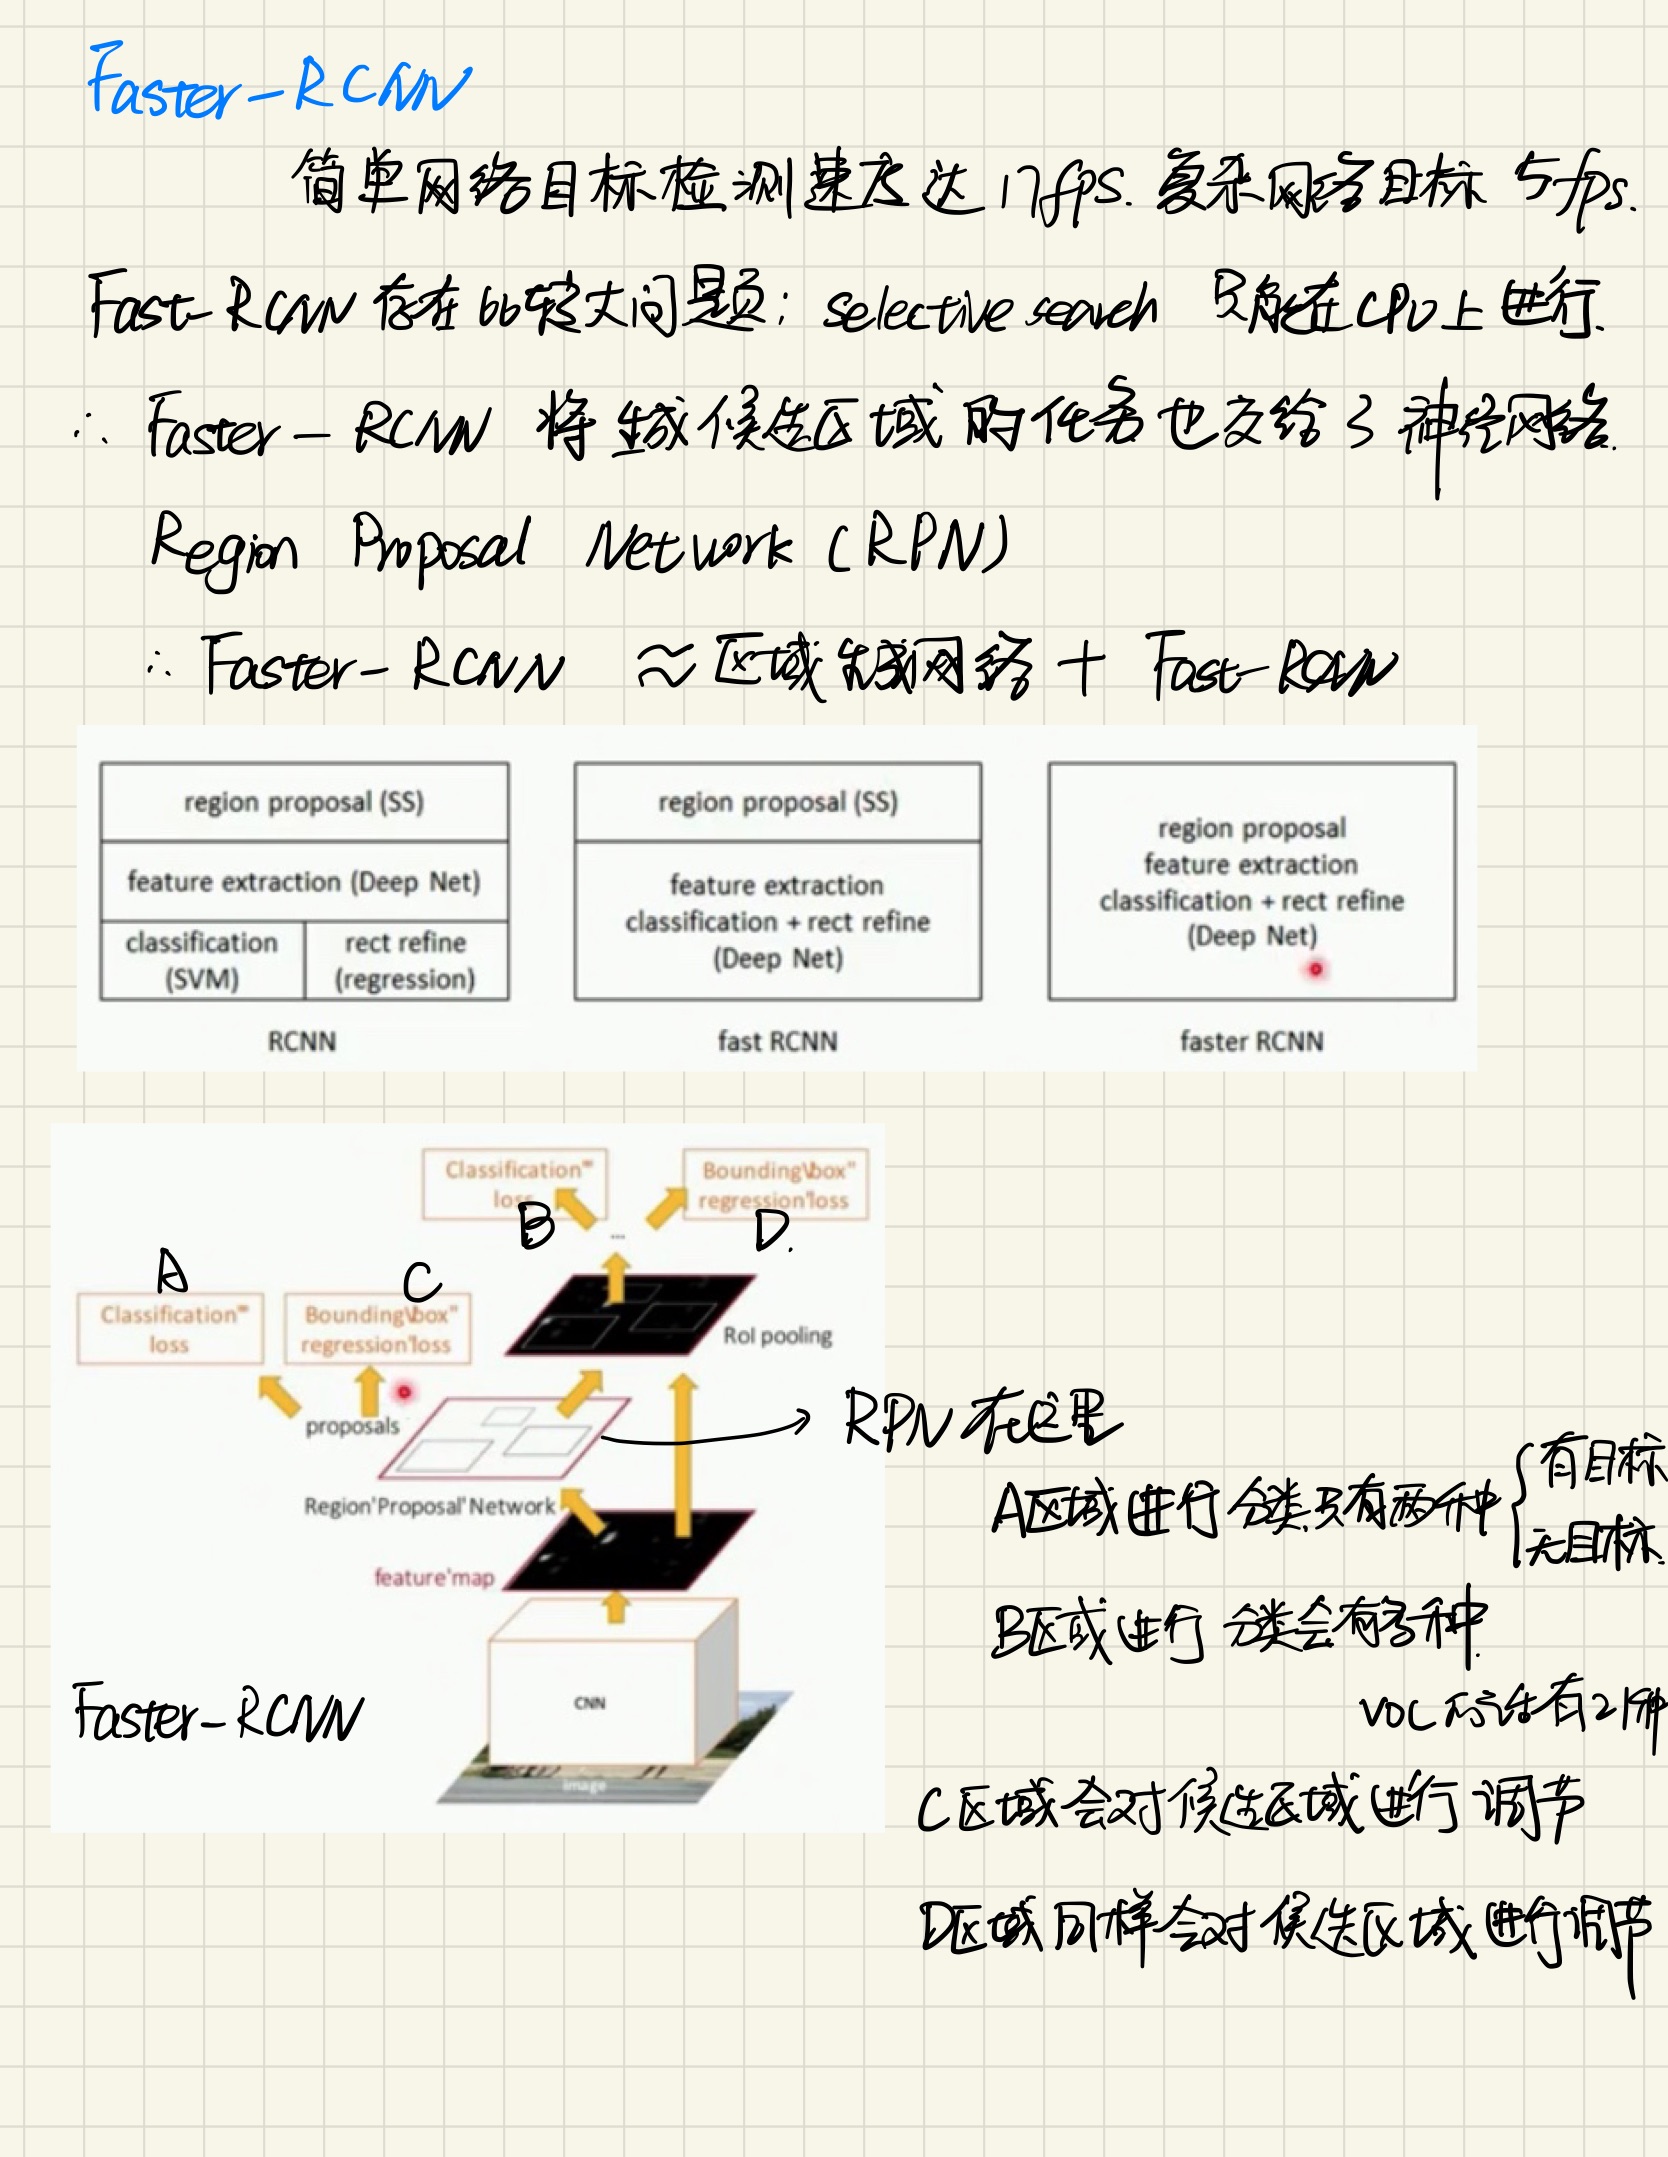 Faster-RCNN
简单网络目标检测速度达17fps. 复杂网络目标 5fps.
Fast-RCNN 存在比较大问题: selective search 只能在CPU上进行.
∴ Faster-RCNN 将生成候选区域的任务也交给了神经网络.
Region Proposal Network (RPN)
∴ Faster-RCNN ≈ 区域生成网络 + Fast-RCNN
region proposal (SS)
feature extraction (Deep Net)
classification
(SVM)
rect refine
(regression)
RCNN
region proposal (SS)
feature extraction
classification + rect refine
(Deep Net)
fast RCNN
region proposal
feature extraction
classification + rect refine
(Deep Net)
faster RCNN
Classification"
loss
B
Bounding\box"
regression'loss
D.
...
A
Classification"
loss
C
Bounding\box"
regression'loss
RoI pooling
proposals
Region'Proposal'Network
feature'map
CNN
image
Faster-RCNN
RPN在这里
A区域进行分类只有两种 { 有目标
无目标.
B区或进行分类会有多种.
VOC的话有21种
C区域会对候选区域进行调节
D区域同样会对候选区域进行调节